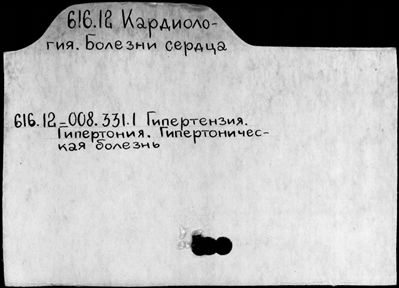 616.12 Кардиоло-
гия. Болезни сердца
616.12-008.331.1 Гипертензия.
Гипертония. Гипертоничес-
кая болезнь